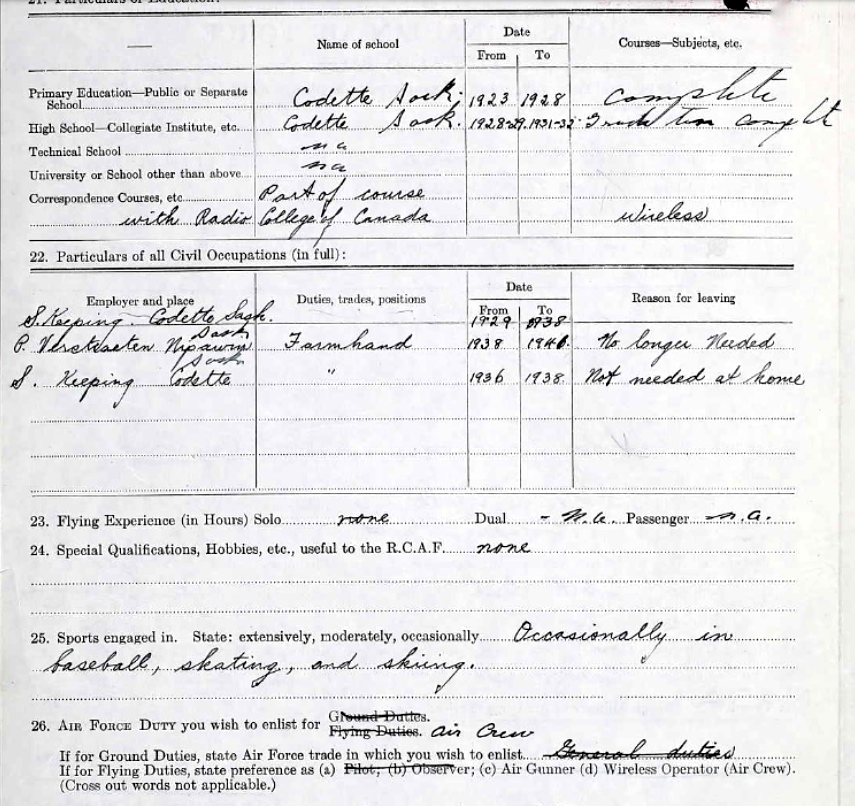 21. Particulars of Education:
Name of school Date Courses—Subjects, etc.
From To
Primary Education—Public or Separate
School Codette Sask. 1923 1928 Complete
High School—Collegiate Institute, etc. Codette Sask. 1928-29. 1931-32
Technical School na
University or School other than above na
Correspondence Courses, etc Part of course
with Radio College of Canada Wireless
22. Particulars of all Civil Occupations (in full):
Employer and place Duties, trades, positions Date Reason for leaving
From To
S. Keeping. Codette Sask. 1929 1938
Sask
P. Nipawin Farmhand 1938 No longer Needed
Sask
S. Keeping Codette " 1936 1938. Not needed at home
23. Flying Experience (in Hours) Solo none Dual - N.a. Passenger n.a.
24. Special Qualifications, Hobbies, etc., useful to the R.C.A.F. none
25. Sports engaged in. State: extensively, moderately, occasionally Occasionally in
baseball, skating, and skiing.
26. AIR FORCE DUTY you wish to enlist for Ground Duties.
Flying Duties. Air Crew
If for Ground Duties, state Air Force trade in which you wish to enlist General duties
If for Flying Duties, state preference as (a) Pilot; (b) Observer; (c) Air Gunner (d) Wireless Operator (Air Crew).
(Cross out words not applicable.)